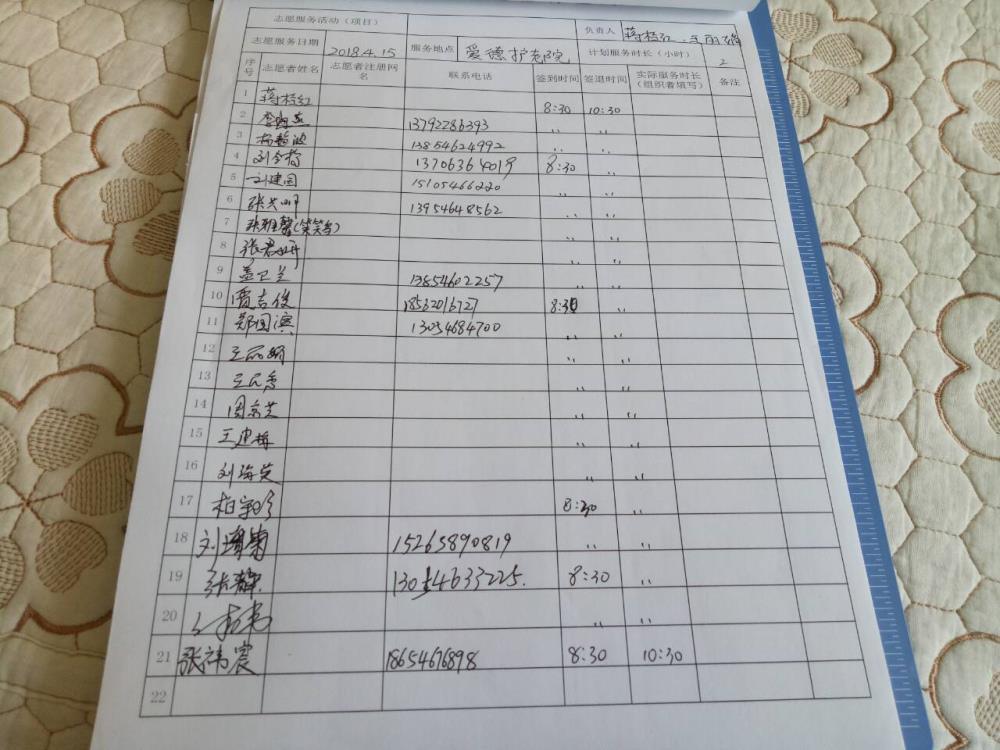 志愿服务活动（项目） 负责人 蒋桂红
志愿服务日期 2018.4.15 服务地点 爱德护老院 计划服务时长（小时） 2
序号 志愿者姓名 志愿者注册网名 联系电话 签到时间 签退时间 实际服务时长（组织者填写） 备注
1 蒋桂红 8:30 10:30
2 13792286393 〃 〃
3 13854624992 〃 〃
4 刘令梅 13706364019 8:30 〃
5 刘建国 15105466220 〃 〃
6 13954648562 〃 〃
7 张雅馨(笑笑与) 〃 〃
8 张君妍 〃 〃
9 孟卫兰 13854602257 〃 〃
10 雷吉俊 18562016727 8:30 〃
11 郑国滨 13054684700 〃 〃
12 王丽娟 〃 〃
13 王凡香 〃 〃
14 周京芝 〃 〃
15 王建梅 〃 〃
16 刘海英 〃 〃
17 8:30 〃
18 刘 菊 15265890819 〃 〃
19 张静 13054633225. 8:30 〃
20 〃 〃
21 张祎震 18654676898 8:30 10:30
22